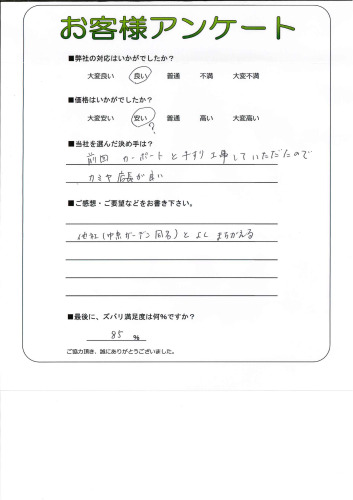 お客様アンケート
■弊社の対応はいかがでしたか？
大変良い 良い 普通 不満 大変不満
■価格はいかがでしたか？
大変安い 安い 普通 高い 大変高い
?
■当社を選んだ決め手は？
前回 カーポートと手すり工事していただたので
カミヤ店長が良い
■ご感想・ご要望などをお書き下さい。
他社(中京ガーデン同名)とよくまちがえる
■最後に、ズバリ満足度は何%ですか？
85 %
ご協力頂き、誠にありがとうございました。